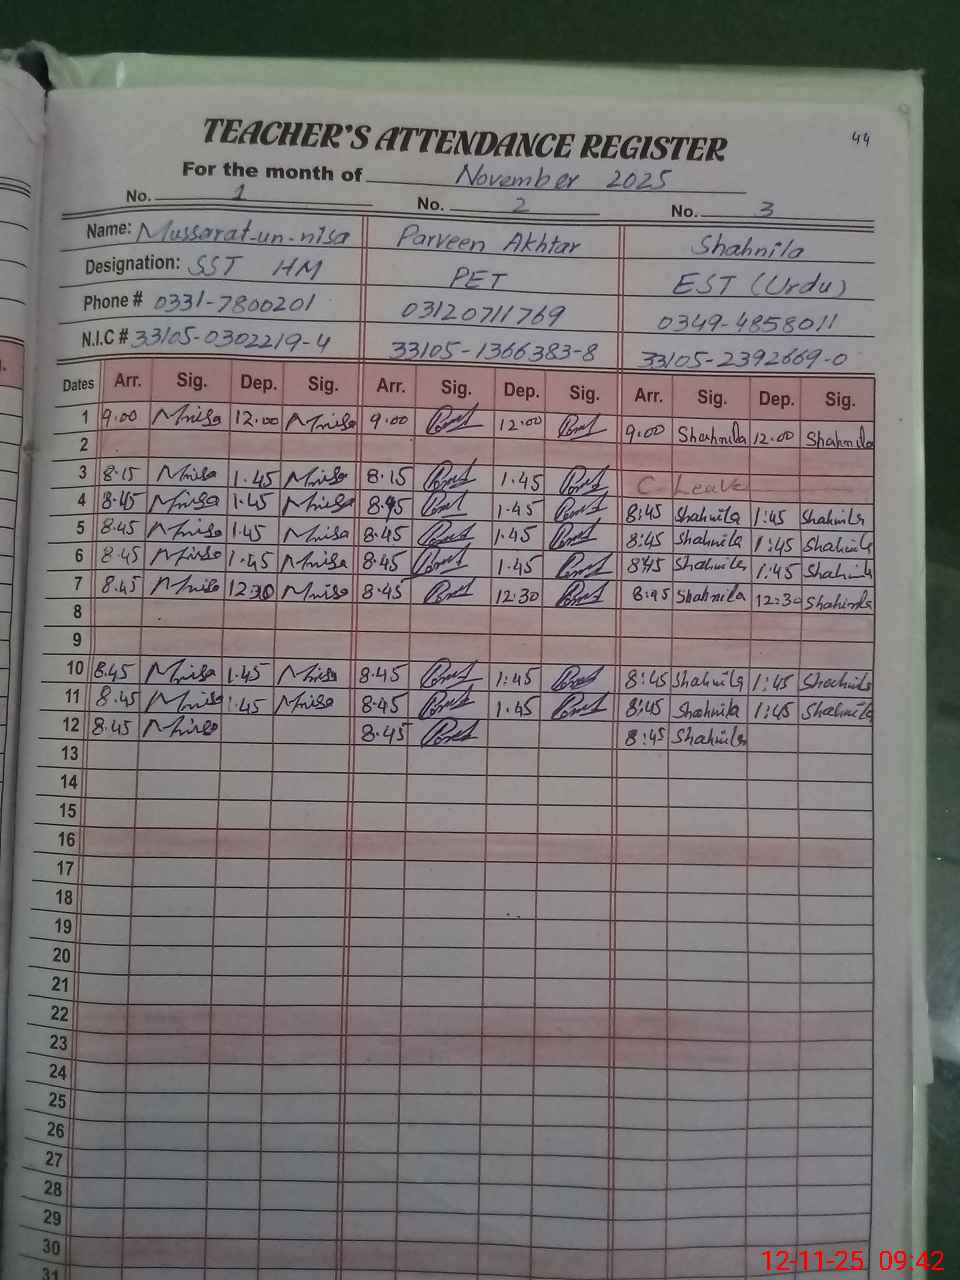 TEACHER'S ATTENDANCE REGISTER 44
For the month of November 2025
No. 1 No. 2 No. 3
Name: Mussarat-un-nisa Parveen Akhtar Shahnila
Designation: SST HM PET EST (Urdu)
Phone # 0331-7800201 03120711769 0349-4858011
N.I.C # 33105-0302219-4 33105-1366383-8 33105-2392669-0
Dates Arr. Sig. Dep. Sig. Arr. Sig. Dep. Sig. Arr. Sig. Dep. Sig.
1 9.00 Mnisa 12.00 Mnisa 9.00 12.00 9.00 Shahnila 12.00 Shahnila
2
3 8.15 Mnisa 1.45 Mnisa 8.15 1.45 C-Leave
4 8.45 Mnisa 1.45 Mnisa 8.45 1.45 8:45 Shahnila 1:45 Shahnila
5 8.45 Mnisa 1.45 Mnisa 8.45 1.45 8:45 Shahnila 1:45 Shahnila
6 8.45 Mnisa 1.45 Mnisa 8.45 1.45 8:45 Shahnila 1:45 Shahnila
7 8.45 Mnisa 12.30 Mnisa 8.45 12:30 8.45 Shahnila 12:30 Shahnila
8
9
10 8.45 Mnisa 1.45 Mnisa 8.45 1:45 8:45 Shahnila 1:45 Shahnila
11 8.45 Mnisa 1.45 Mnisa 8.45 1.45 8:45 Shahnila 1:45 Shahnila
12 8.45 Mnisa 8.45 8:45 Shahnila
13
14
15
16
17
18
19
20
21
22
23
24
25
26
27
28
29
30
31
12-11-25 09:42